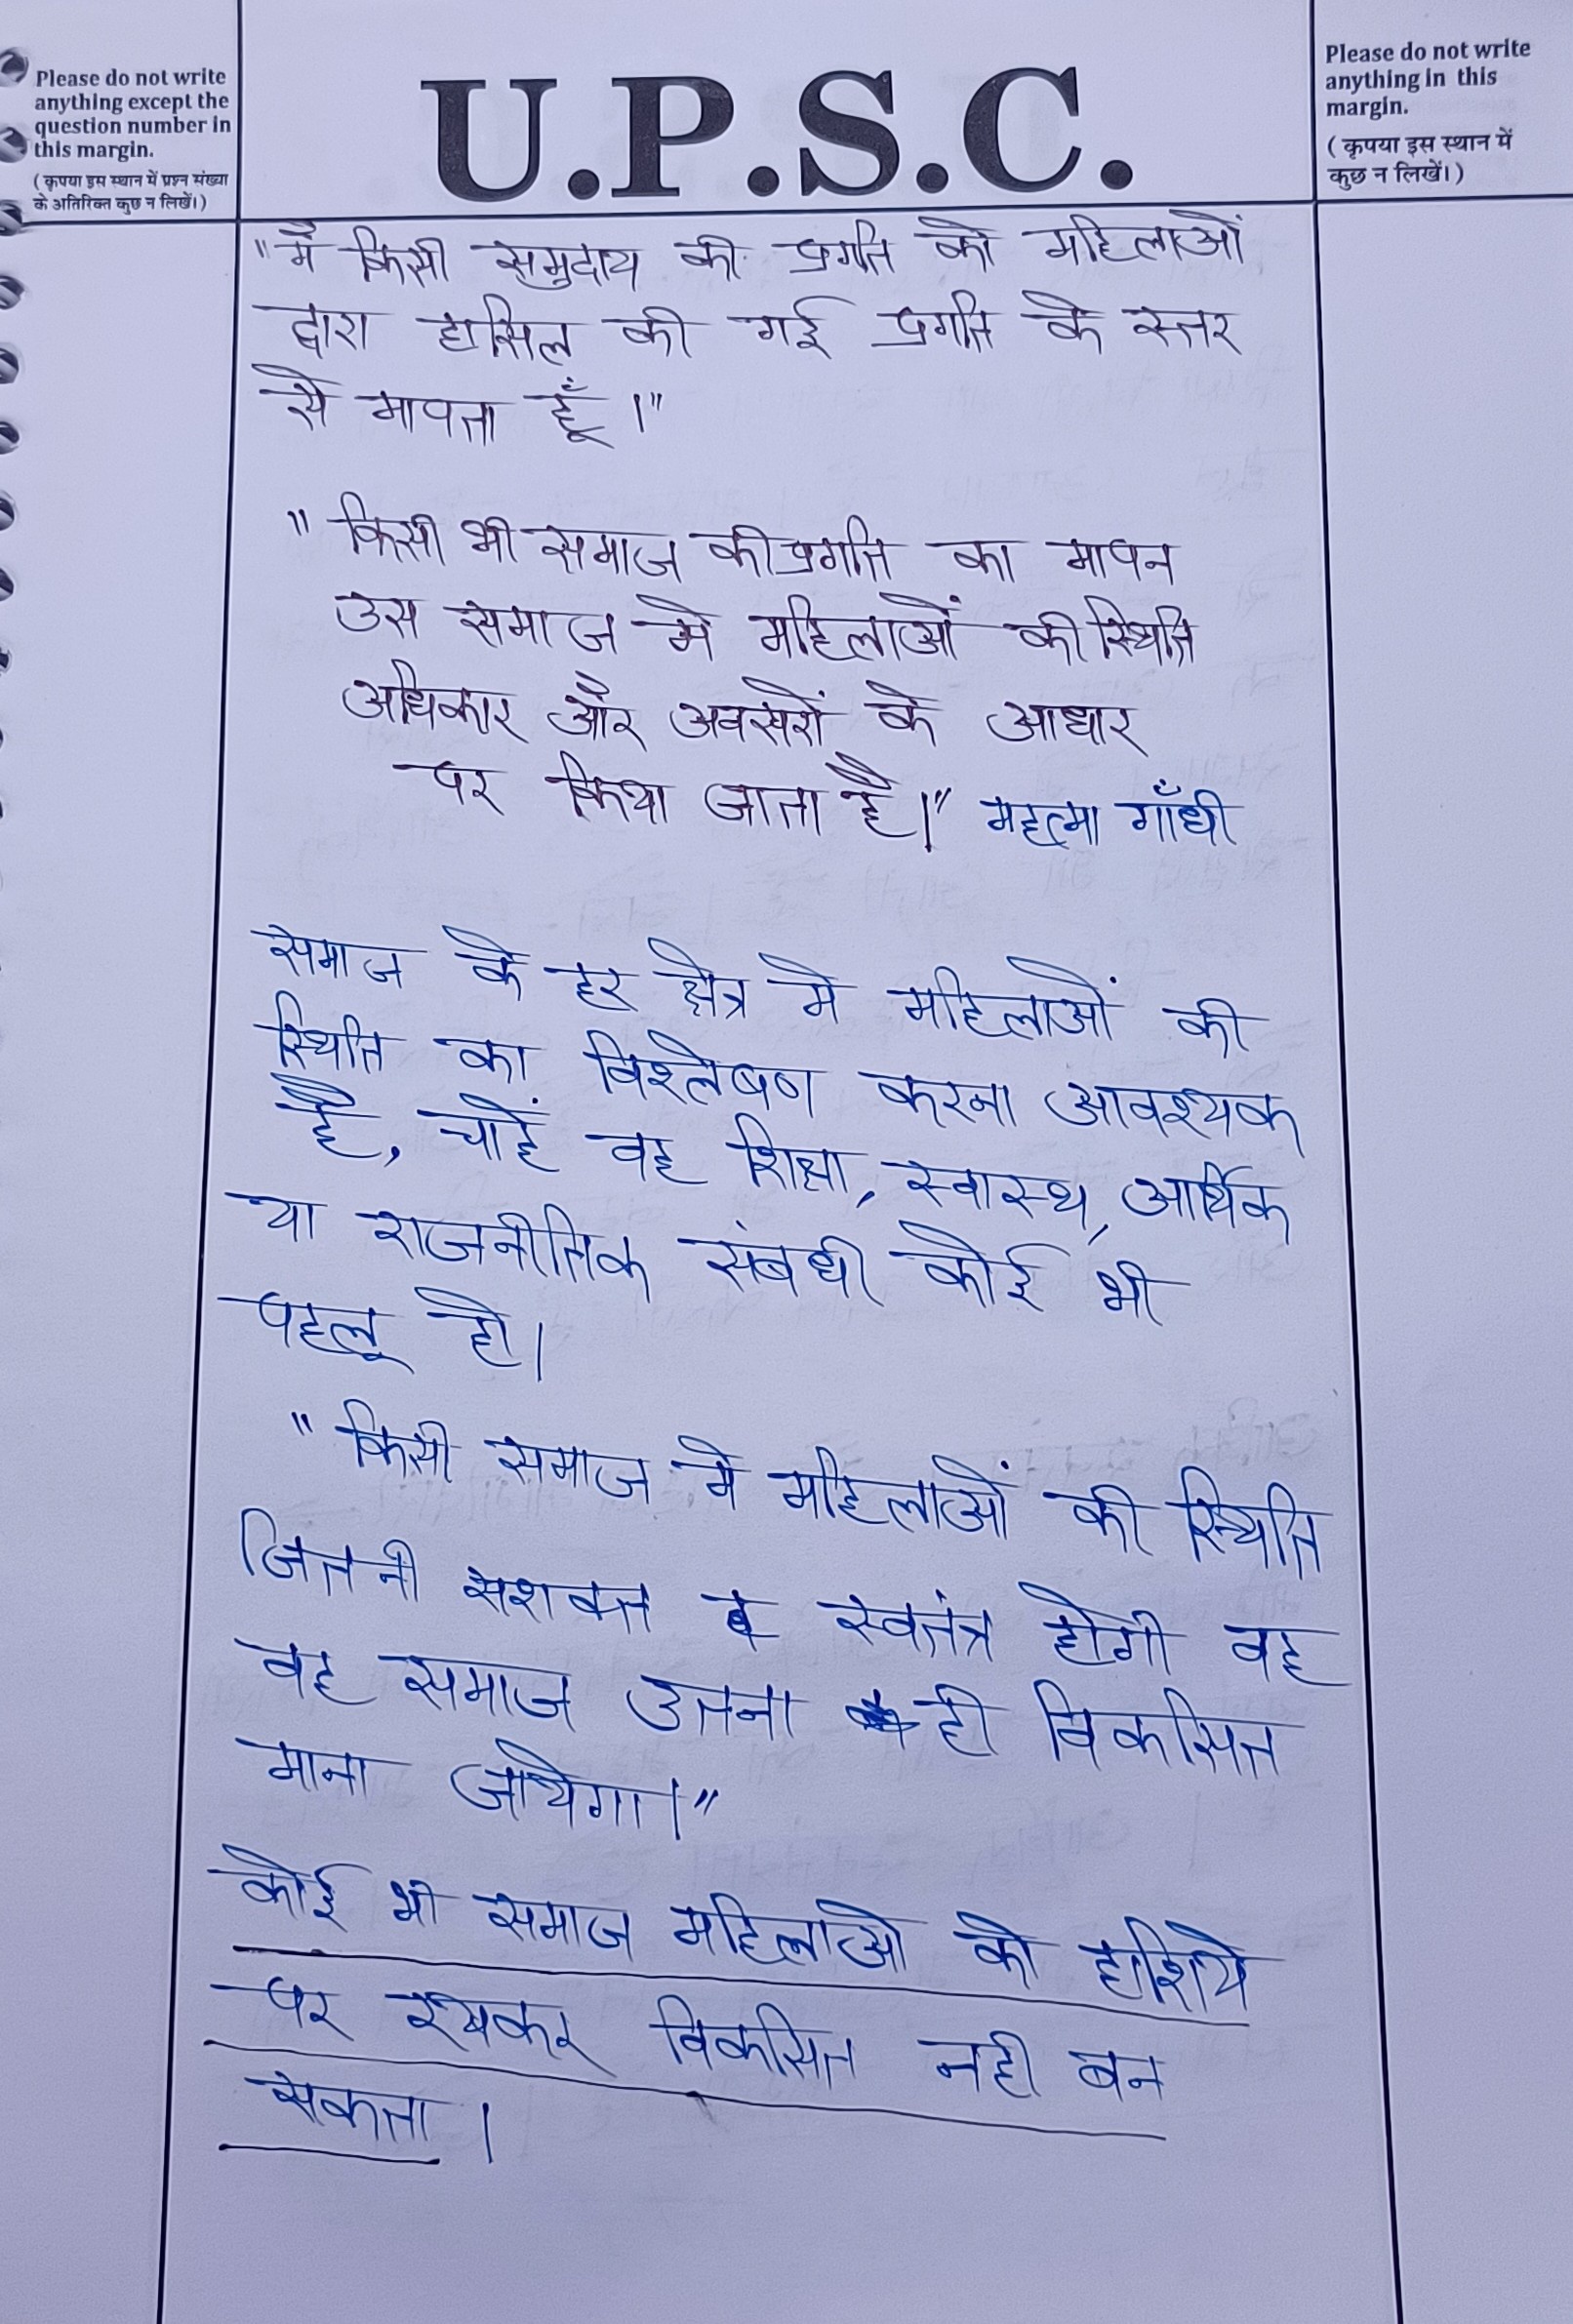 Please do not write
anything except the
question number in
this margin.
(कृपया इस स्थान में प्रश्न संख्या
के अतिरिक्त कुछ न लिखें।)
U.P.S.C.
Please do not write
anything in this
margin.
(कृपया इस स्थान में
कुछ न लिखें।)
"मैं किसी समुदाय की प्रगति को महिलाओं
द्वारा हासिल की गई प्रगति के स्तर
से मापता हूँ।"
"किसी भी समाज की प्रगति का मापन
उस समाज मे महिलाओं की स्थिति
अधिकार और अवसरों के आधार
पर किया जाता है।" महत्मा गाँधी
समाज के हर क्षेत्र मे महिलाओं की
स्थिति का विश्लेषण करना आवश्यक
है, चाहें वह शिक्षा, स्वास्थ, आर्थिक
या राजनीतिक संबधी कोई भी
पहलू हो।
"किसी समाज मे महिलाओं की स्थिति
जितनी सशक्त व स्वतंत्र होगी वह
वह समाज उतना ही विकसित
माना जायेगा।"
कोई भी समाज महिलाओ को हाशिये
पर रखकर विकसित नही बन
सकता।